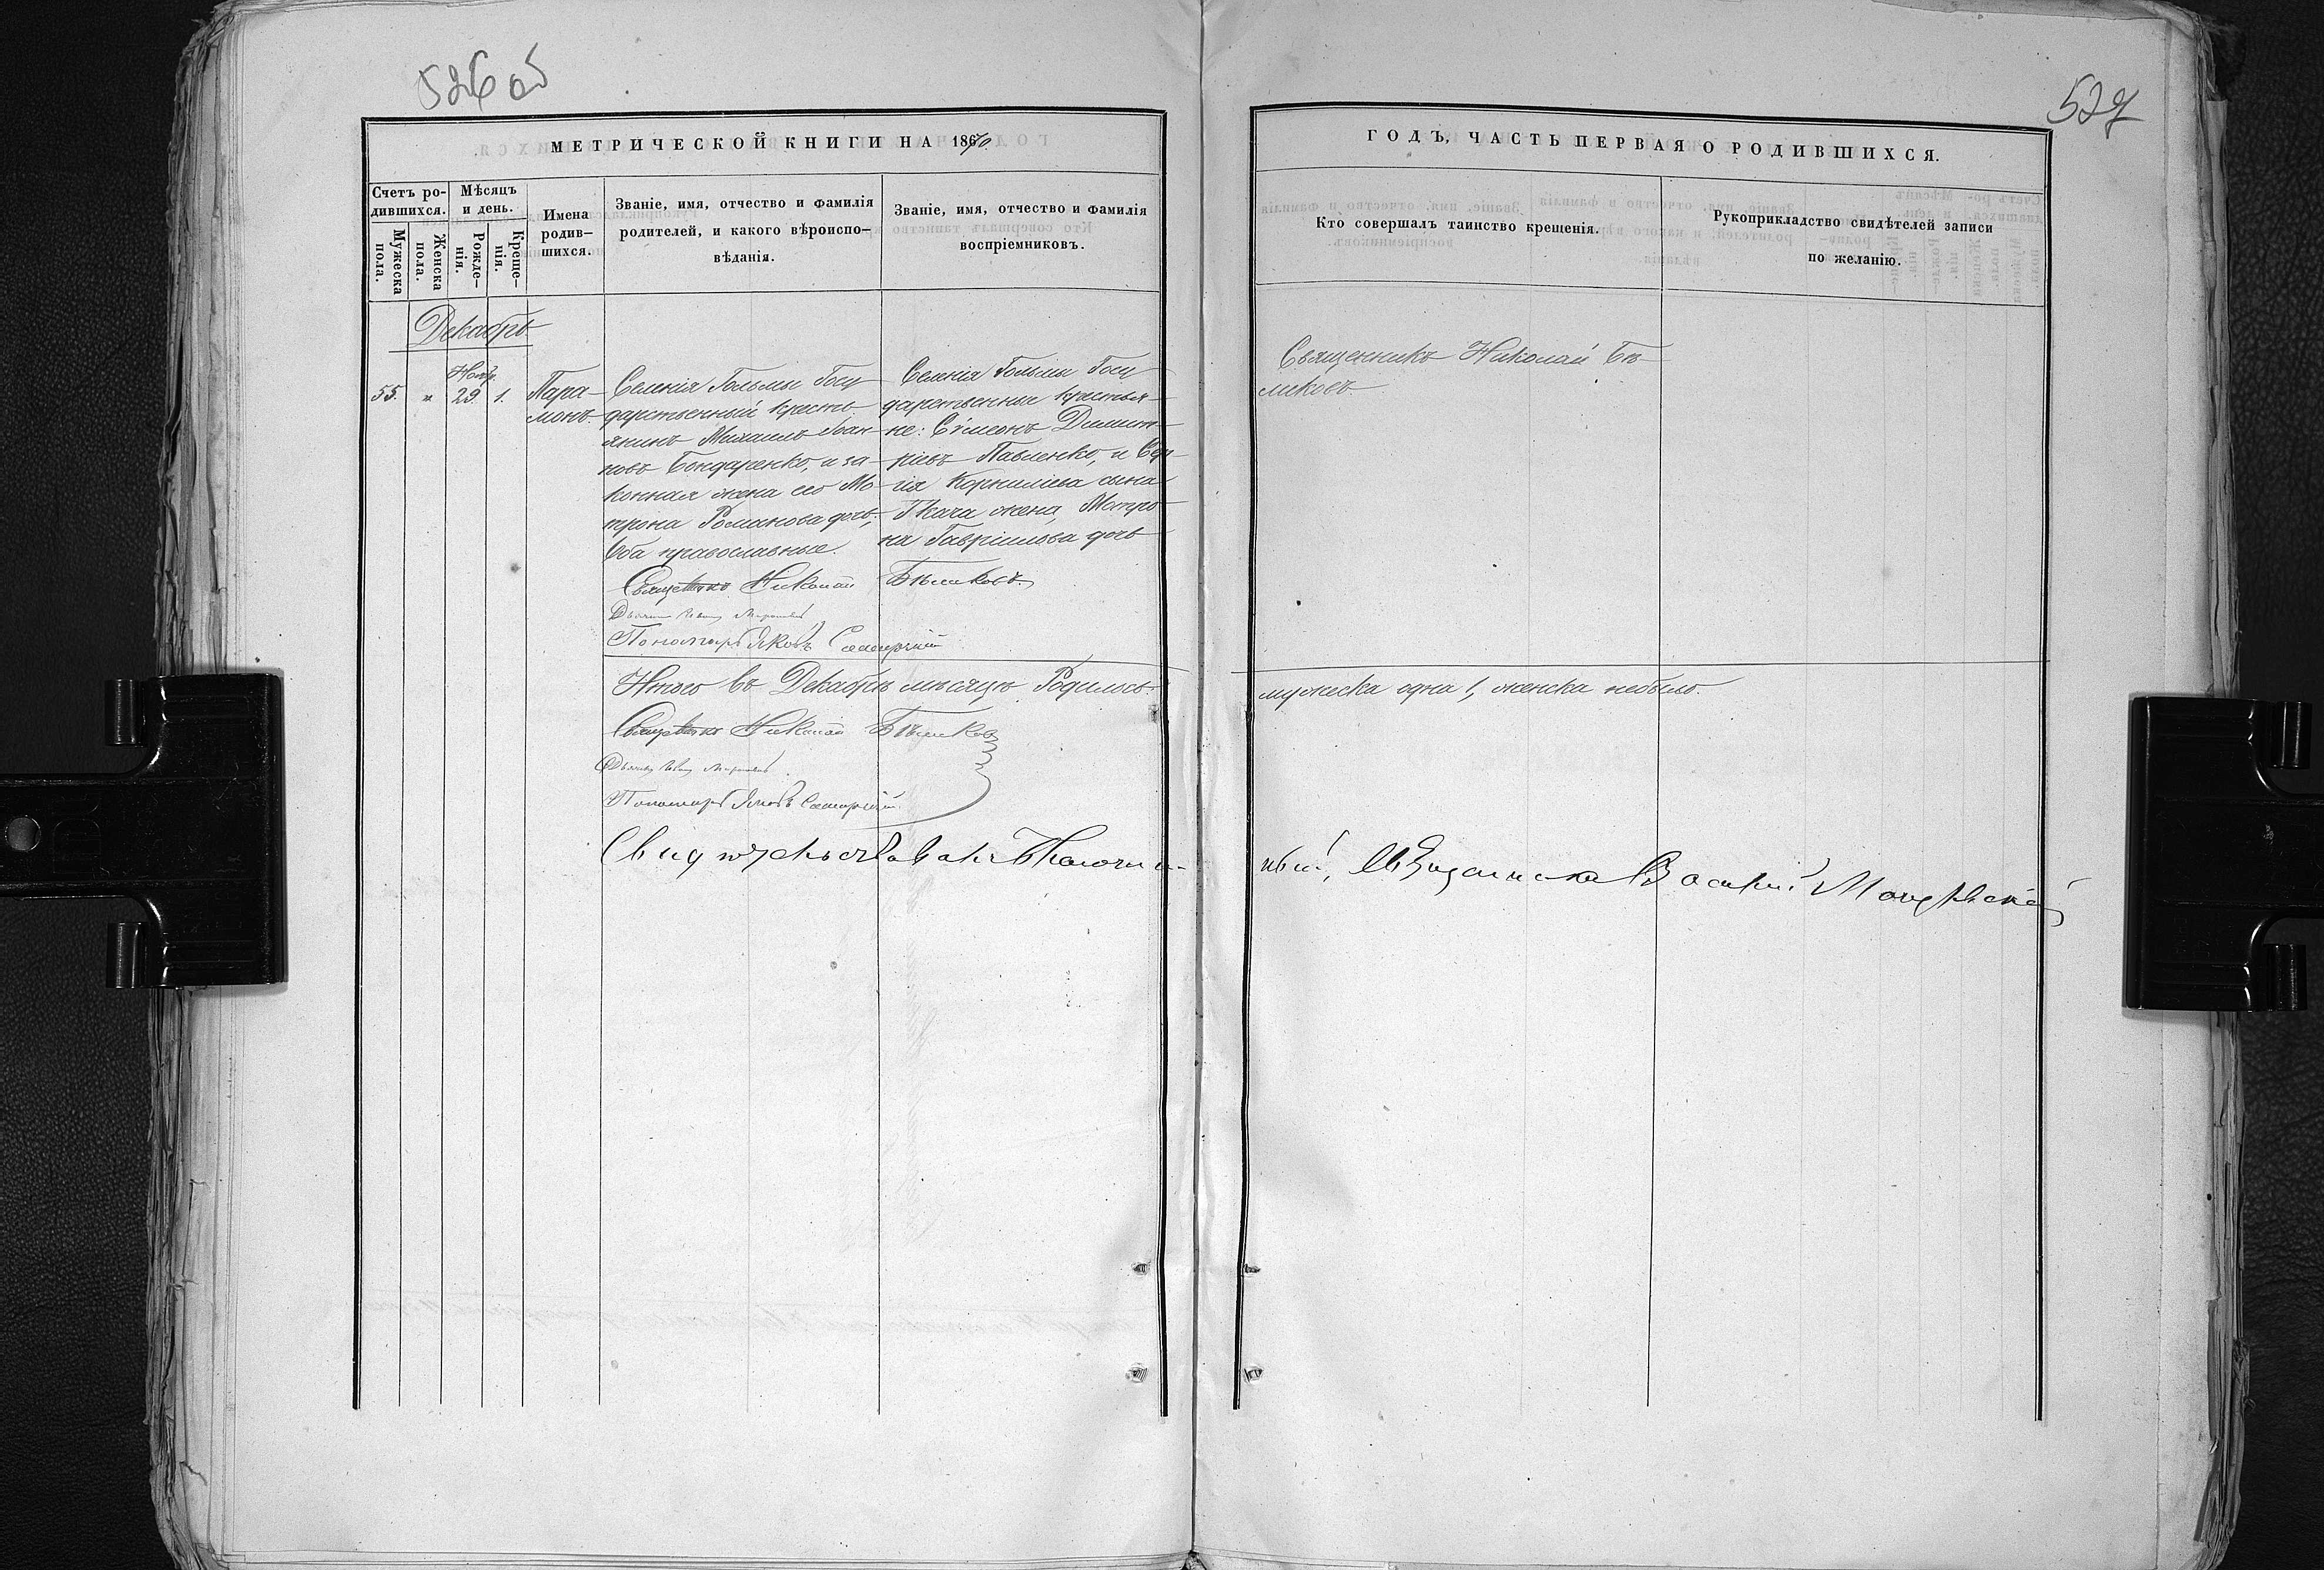 526 об
527
МЕТРИЧЕСКОЙ КНИГИ НА 1870
ГОДЪ, ЧАСТЬ ПЕРВАЯ О РОДИВШИХСЯ.
Счетъ ро-
дившихся.
Мужеска
пола.
Женска
пола.
Мѣсяцъ
и день.
Рожде-
нія.
Креще-
нія.
Имена
родив-
шихся.
Званіе, имя, отчество и фамилія
родителей, и какого вѣроиспо-
вѣданія.
Званіе, имя, отчество и фамилія
воспріемниковъ.
Кто совершалъ таинство крещенія.
Рукоприкладство свидѣтелей записи
по желанію.
Декабрь
55. " Нояб. 29. 1.
Пара-
монъ.
Селенія Гольмы Госу
дарственный кресть-
янинъ Михаилъ Іоан
новъ Бондаренко, и за-
конная жена его Мо-
трона Романова дочь,
Оба православные.
Селенія Гольмы Госу
дарственные крестья-
не: Сѵмеонъ Димит-
ріевъ Павленко, и Сер-
гія Корниліева сына
Ткача жена, Мотро
на Гавріилова дочь
Священникъ Николай Бѣ
ликовъ.
Священникъ Николай Бѣликовъ.
Пономарь Яковъ
Итого въ Декабрѣ мѣсяцѣ Родилось
мужеска одна 1, женска небыло.
Священникъ Николай Бѣликовъ
Пономарь Яковъ
Свидѣтельствовалъ Благочин-
ный, Священникъ Василій